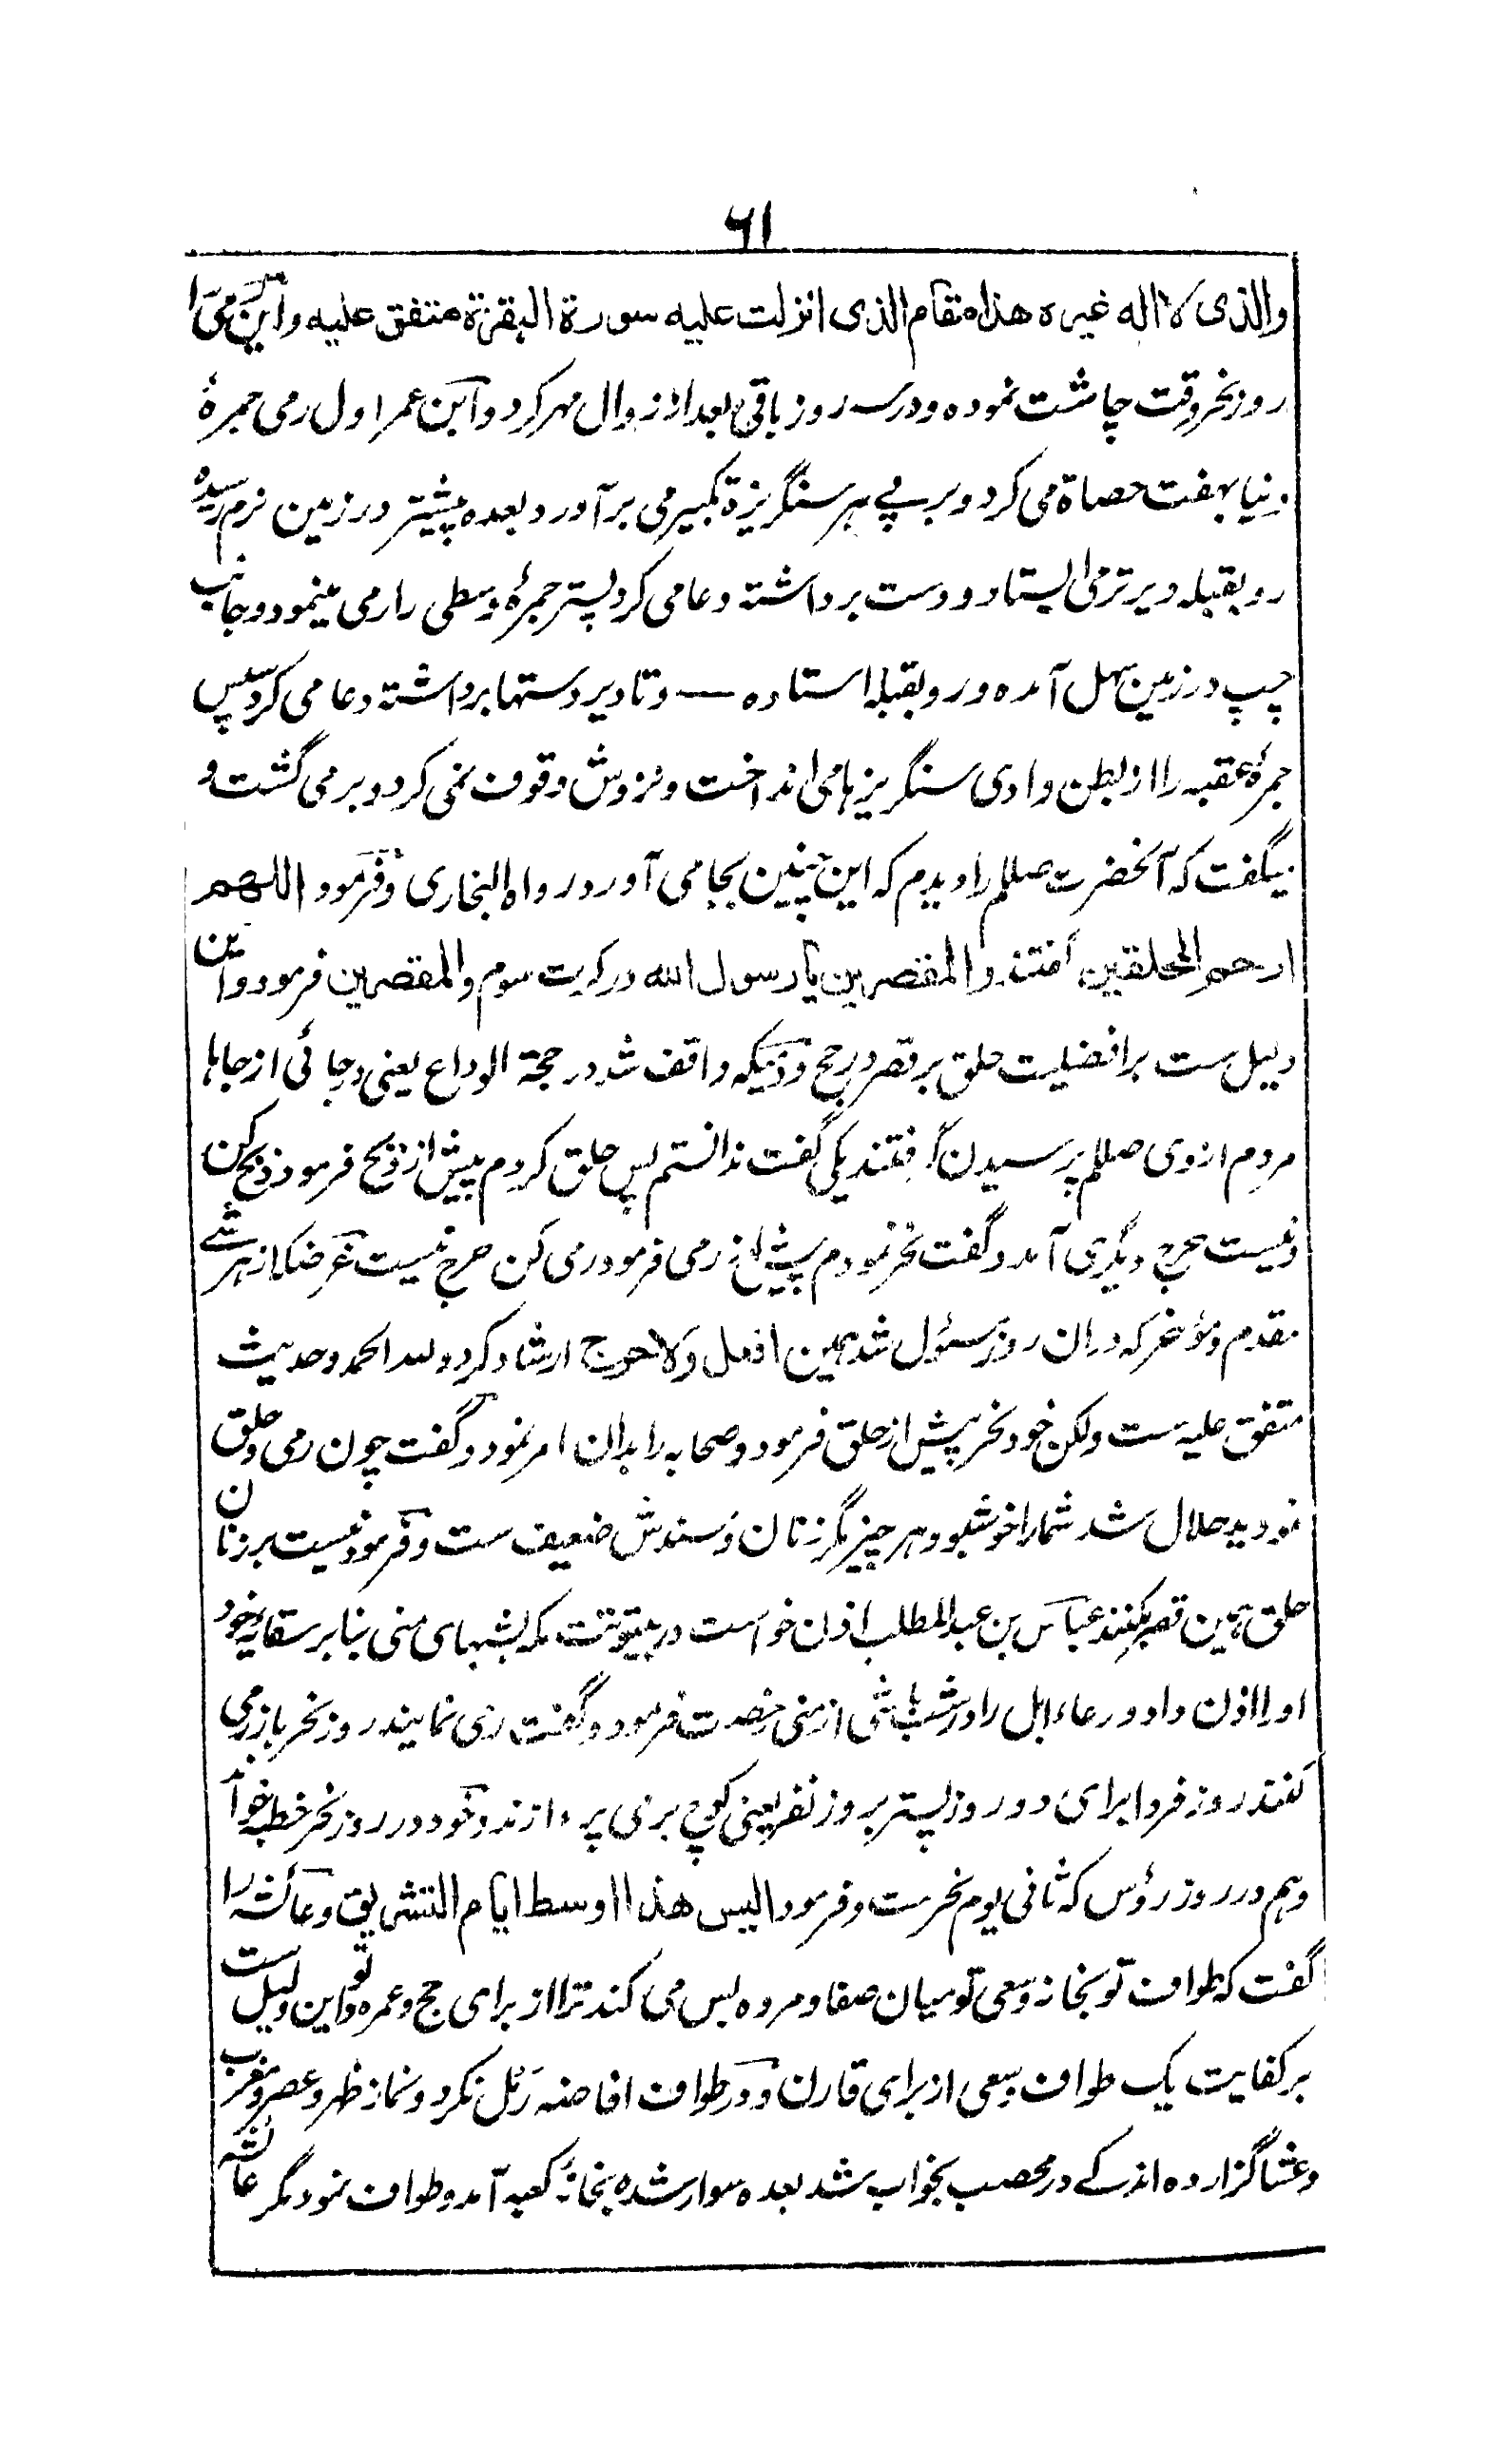 ۶۱
والذی لا اله غیره هذا مقام الذی انزلت علیه سورة البقرة متفق علیه و این رمی را
روز نحر وقت چاشت نموده و در سه روز باقی بعد از زوال مهر کرد و ابن عمر اول رمی جمرۀ
دنیا بهفت حصاة می کرد و بر پی هر سنگریزه تکبیر می برآورد و بعده پیشتر در زمین نرم رسیده
رو بقبله دیرتر می ایستاد و دست برداشته دعا می کرد پستر جمرۀ وسطی را رمی مینمود و بجانب
چپ در زمین سهل آمده و رو بقبله استاده — و تا دیر دستها برداشته دعا می کرد سپس
جمرۀ عقبه را از بطن وادی سنگریزها می انداخت و نزدش وقوف نمی کرد و بر می گشت و
میگفت که آنحضرت صللم را دیدم که این چنین بجا می آورد رواه البخاری و فرمود اللهم
ارحم المحلقین گفتند والمقصرین یا رسول الله در کرت سوم والمقصرین فرمود و این
دلیل ست بر افضلیت حلق بر قصر در حج و دمیکه واقف شد در حجة الوداع یعنی در جائی از جاها
مردم از وی صللم پرسیدن گرفتند یکی گفت ندانستم پس حلق کردم پیش از ذبح فرمود ذبح کن
و نیست حرج دیگری آمد و گفت نحر نمودم پیش از رمی فرمود رمی کن حرج نیست غرضکه از هر شے
مقدم و مؤخر که دران روز مسئول شد همین افعل ولا حرج ارشاد کرد ولله الحمد و حدیث
متفق علیه ست ولکن خود نحر پیش از حلق فرمود و صحابه را بدان امر نمود و گفت چون رمی و حلق
نمودید حلال شد شما را خوشبو و هر چیز مگر زنان و سندش ضعیف ست و فرمود نیست بر زنان
حلق همین قصر بکنند عباس بن عبد المطلب اذن خواست در بیتوتت مکه بشبهای منی بنابر سقایۀ خود
او را اذن داد و رعاء ابل را در شب باشی از منی رخصت فرمود و گفت رمی نمایند روز نحر باز رمی
کنند روز فردا برای دو روز پستر بروز نفر یعنی کوچ برمی پردازند و خود در روز نحر خطبه خواند
و هم در روز رؤس که ثانی یوم نحرست و فرمود الیس هذا اوسط ایام التشریق و عائشه را
گفت که طواف تو بخانه و سعی تو میان صفا و مروه بس می کند ترا از برای حج و عمره تو و این دلیل ست
بر کفایت یک طواف و سعی از برای قارن و در طواف افاضه رمل نکرد و نماز ظهر و عصر و مغرب
و عشا گزارده اندکے در محصب بخواب شد بعده سوار شده بخانۀ کعبه آمد و طواف نمود مگر عائشه